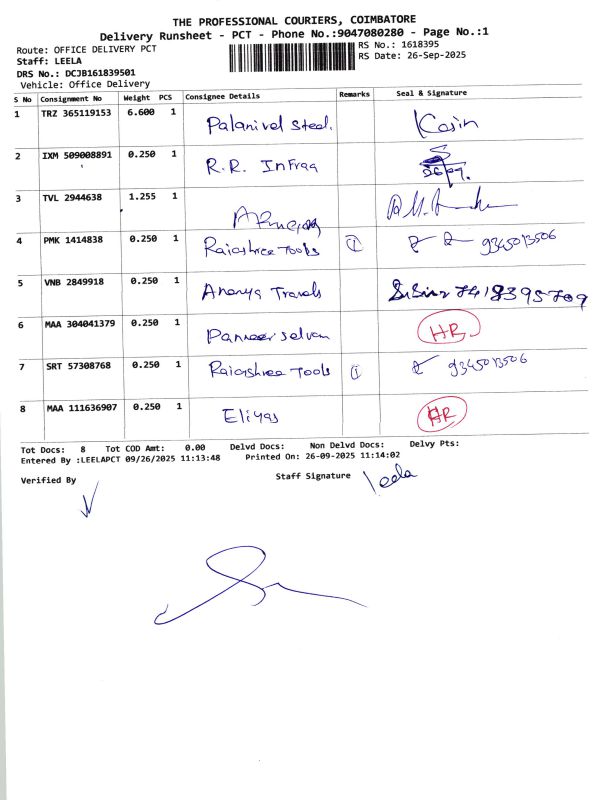 THE PROFESSIONAL COURIERS, COIMBATORE
Delivery Runsheet - PCT - Phone No.:9047080280 - Page No.:1
Route: OFFICE DELIVERY PCT
RS No.: 1618395
Staff: LEELA
RS Date: 26-Sep-2025
DRS No.: DCJB161839501
Vehicle: Office Delivery
S No Consignment No Weight PCS Consignee Details Remarks Seal & Signature
1 TRZ 365119153 6.600 1 Palanivel Steel.
2 IXM 509008891 0.250 1 R.R. InFraa 26/9.
3 TVL 2944638 1.255 1
4 PMK 1414838 0.250 1 Rajashree Tools 1 9345013506
5 VNB 2849918 0.250 1 Ananya Travels 7418395709
6 MAA 304041379 0.250 1 Panneer selvam HR
7 SRT 57308768 0.250 1 Rajashree Tools 1 9345013506
8 MAA 111636907 0.250 1 Eliyas HR
Tot Docs: 8 Tot COD Amt: 0.00 Delvd Docs: Non Delvd Docs: Delvy Pts:
Entered By :LEELAPCT 09/26/2025 11:13:48 Printed On: 26-09-2025 11:14:02
Verified By Staff Signature leela